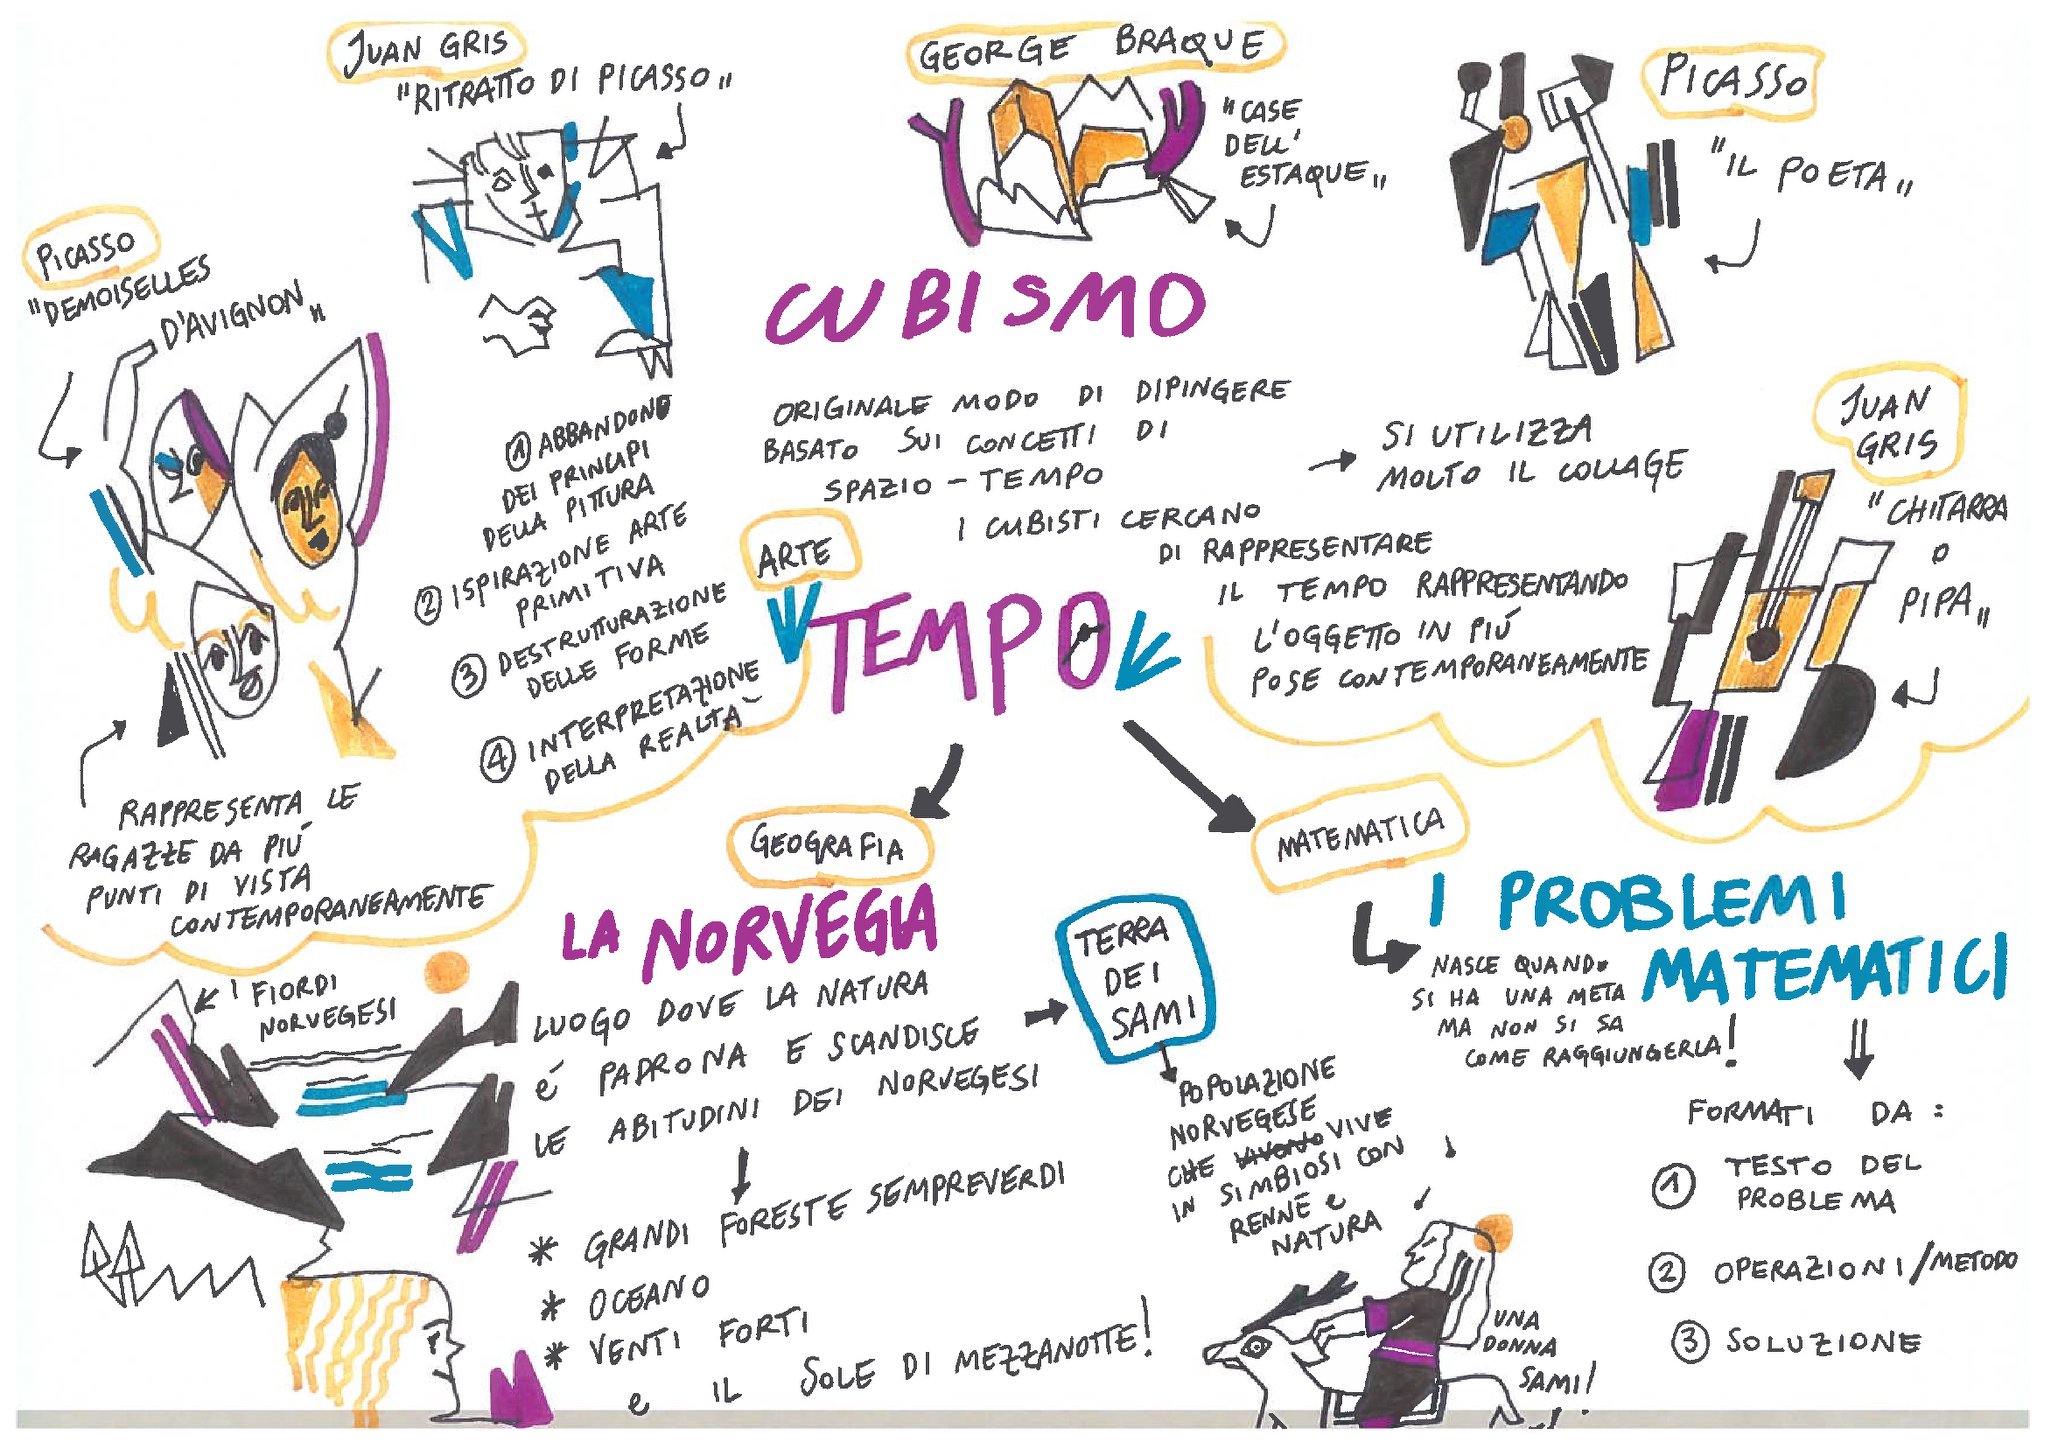 JUAN GRIS
"RITRATTO DI PICASSO"
GEORGE BRAQUE
"CASE
DELL'
ESTAQUE"
PICASSO
"IL POETA"
PICASSO
"DEMOISELLES
D'AVIGNON"
CUBISMO
ORIGINALE MODO DI DIPINGERE
BASATO SUI CONCETTI DI
SPAZIO - TEMPO
I CUBISTI CERCANO
DI RAPPRESENTARE
IL TEMPO RAPPRESENTANDO
L'OGGETTO IN PIÚ
POSE CONTEMPORANEAMENTE
SI UTILIZZA
MOLTO IL COLLAGE
JUAN
GRIS
"CHITARRA
O
PIPA"
1 ABBANDONO
DEI PRINCIPI
DELLA PITTURA
2 ISPIRAZIONE ARTE
PRIMITIVA
3 DESTRUTTURAZIONE
DELLE FORME
4 INTERPRETAZIONE
DELLA REALTA`
ARTE
TEMPO
RAPPRESENTA LE
RAGAZZE DA PIÚ
PUNTI DI VISTA
CONTEMPORANEAMENTE
GEOGRAFIA
LA NORVEGIA
I FIORDI
NORVEGESI
LUOGO DOVE LA NATURA
É PADRONA E SCANDISCE
LE ABITUDINI DEI NORVEGESI
* GRANDI FORESTE SEMPREVERDI
* OCEANO
* VENTI FORTI
e IL SOLE DI MEZZANOTTE!
TERRA
DEI
SAMI
POPOLAZIONE
NORVEGESE
CHE VIVONO VIVE
IN SIMBIOSI CON
RENNE e
NATURA
UNA
DONNA
SAMI!
MATEMATICA
I PROBLEMI
MATEMATICI
NASCE QUANDO
SI HA UNA META
MA NON SI SA
COME RAGGIUNGERLA!
FORMATI DA:
1 TESTO DEL
PROBLEMA
2 OPERAZIONI/METODO
3 SOLUZIONE